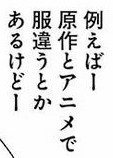 例えばー
原作とアニメで
服違うとか
あるけどー